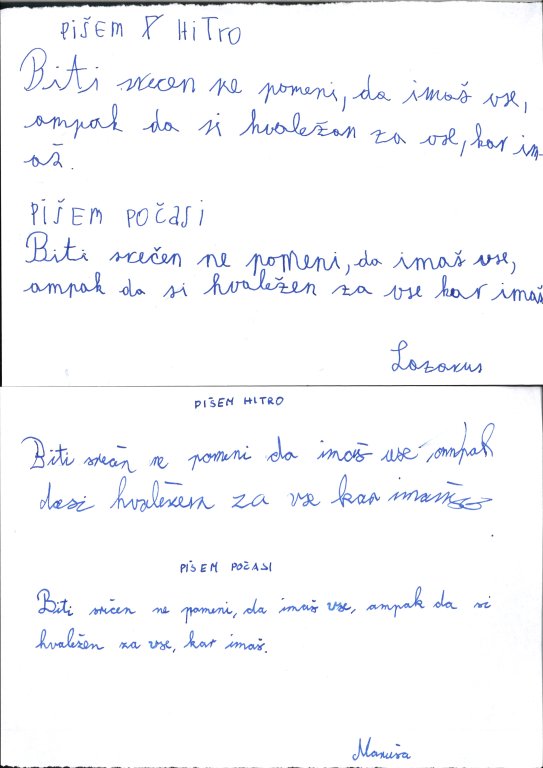 PIŠEM HITRO
Biti srecen ne pomeni, da imaš vse,
ampak da si hvaležan za vse, kar im-
aš.
PIŠEM POČASI
Biti srečen ne pomeni, da imaš vse,
ampak da si hvaležen za vse kar imaš
Lazarus
PIŠEM HITRO
Biti ne pomeni da imaš vse, ampak
dasi hvaležem za vse kar
PIŠEM POČASI
Biti sričen ne pomeni, da imaš vse, ampak da si
hvaležen za vse, kar imaš.
Maruša